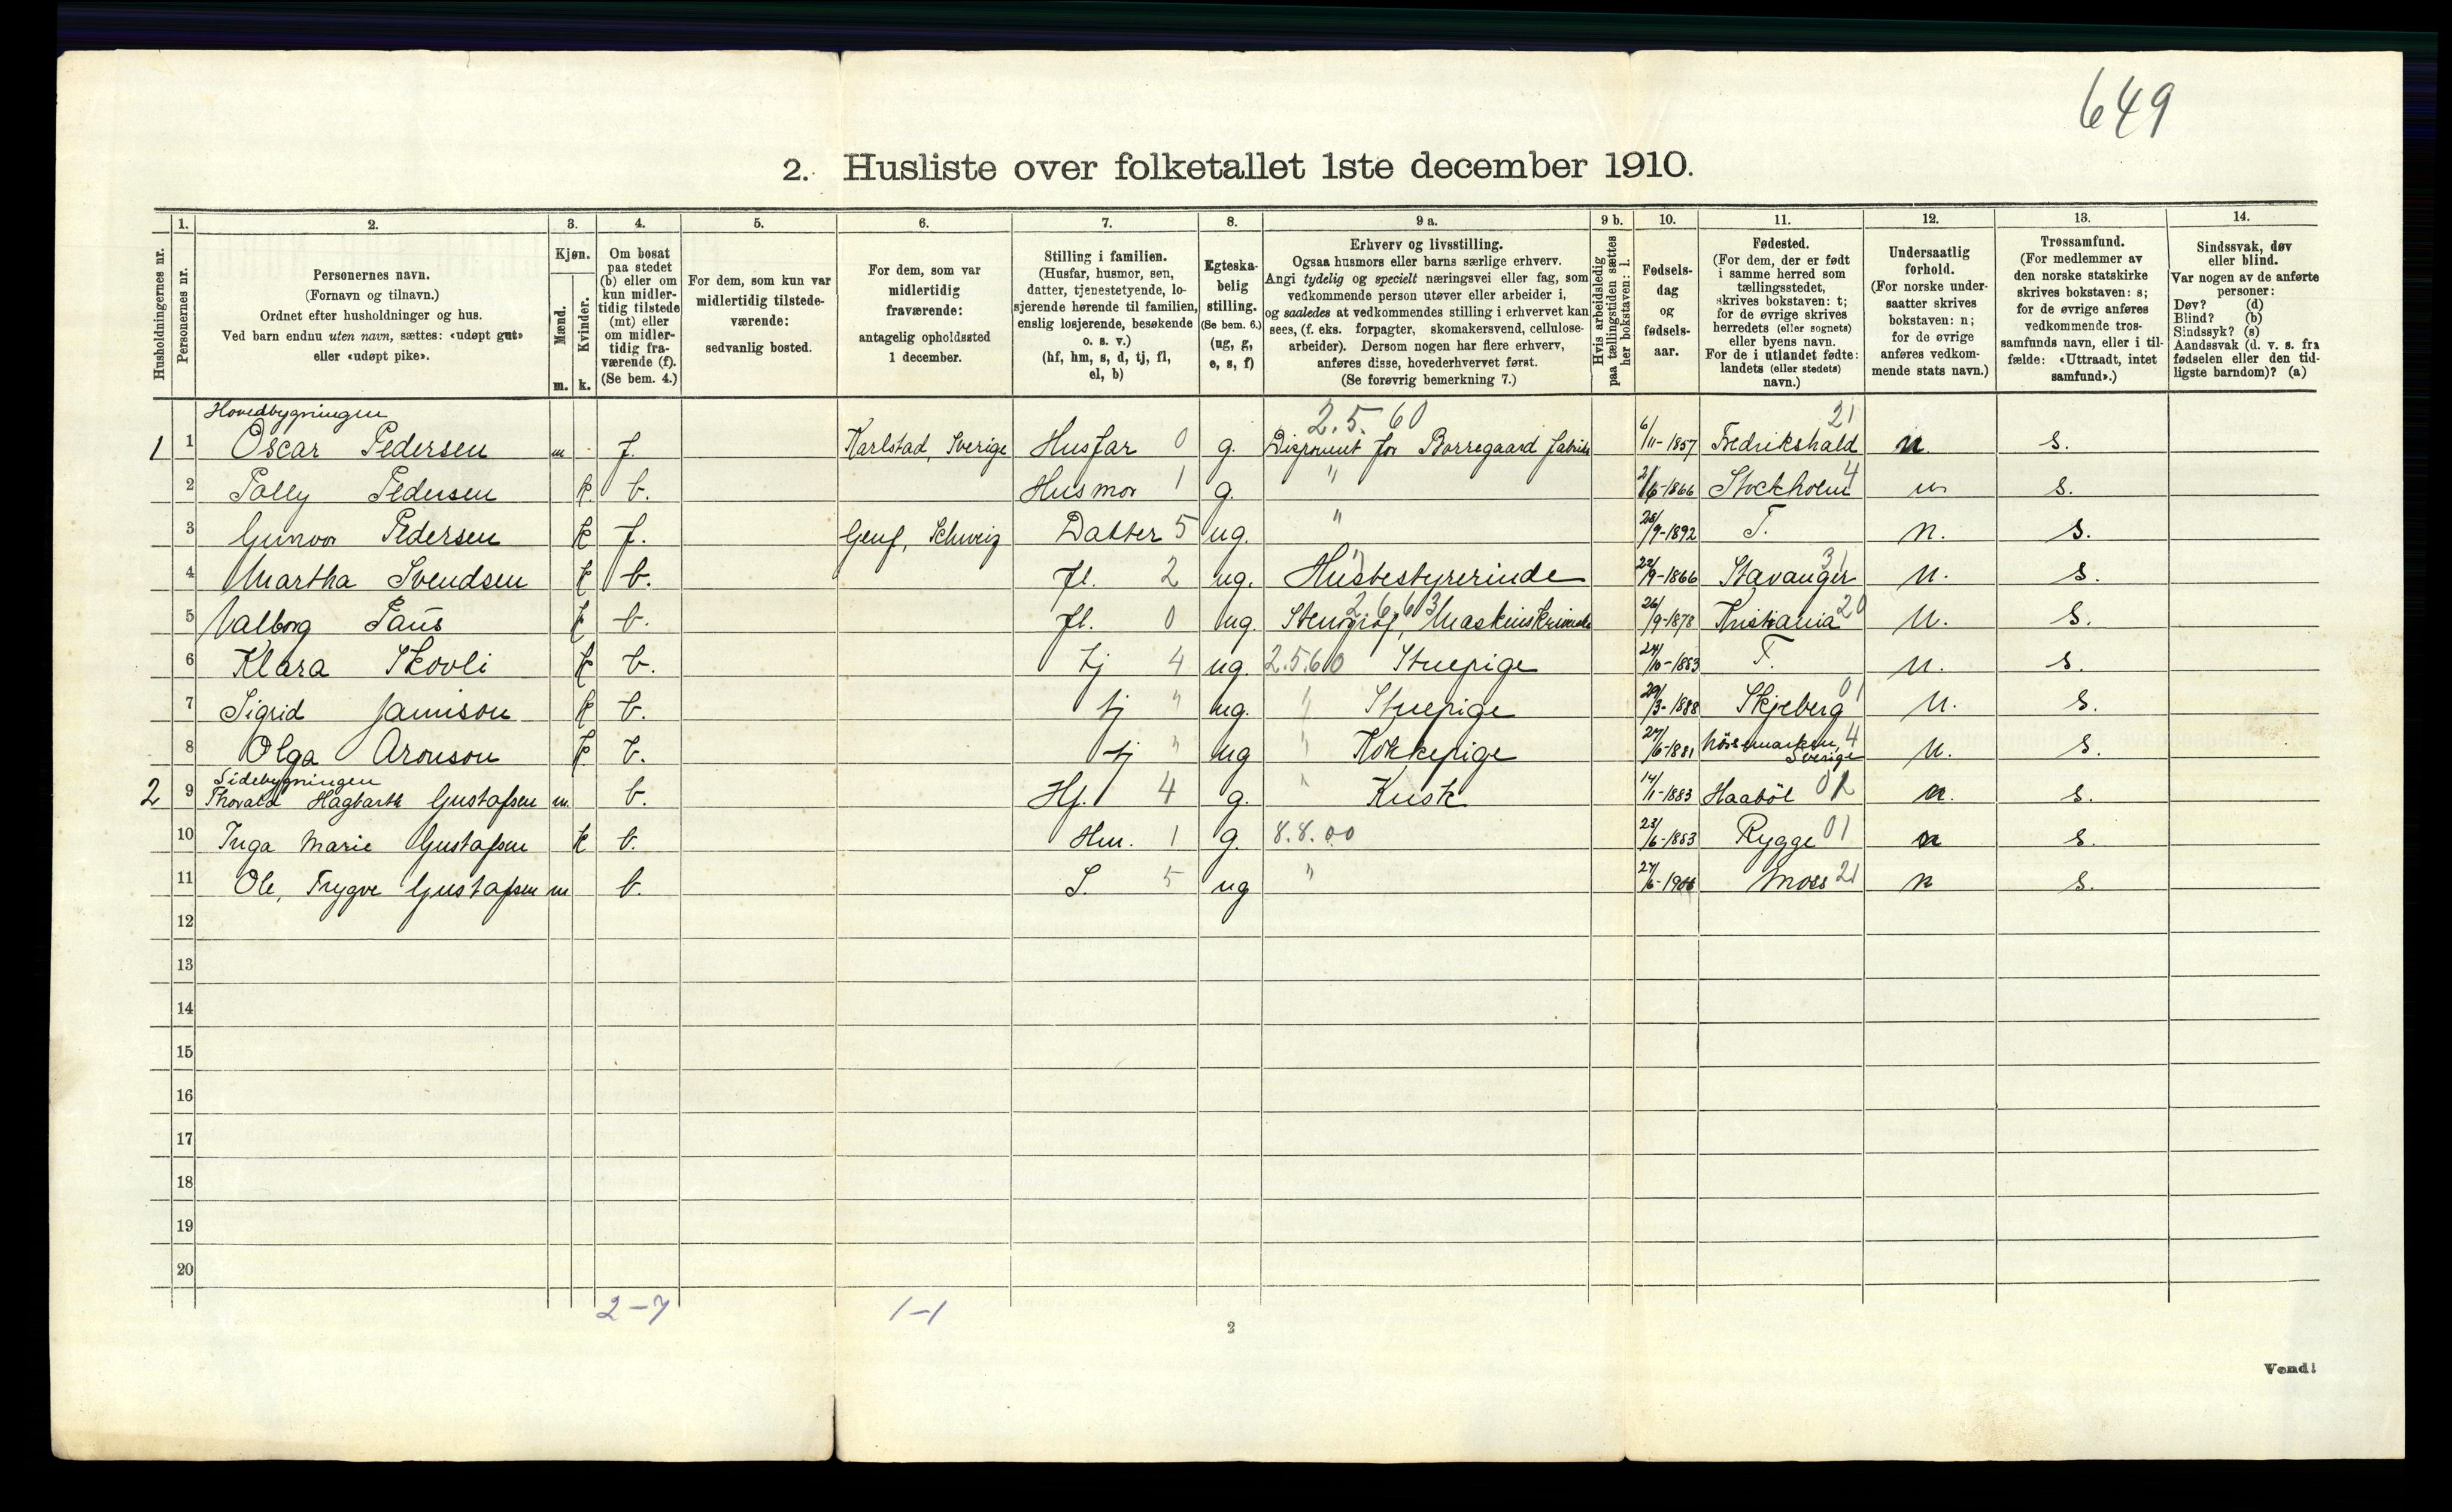 649
2. Husliste over folketallet 1ste december 1910.
Husholdningernes nr.
1.
Personernes nr.
2.
Personernes navn.
(Fornavn og tilnavn.)
Ordnet efter husholdninger og hus.
Ved barn endnu uten navn, sættes: «udøpt gut»
eller «udøpt pike».
3.
Kjøn.
Mænd.
m.
Kvinder.
k.
4.
Om bosat
paa stedet
(b) eller om
kun midler-
tidig tilstede
(mt) eller
om midler-
tidig fra-
værende (f).
(Se bem. 4.)
5.
For dem, som kun var
midlertidig tilstede-
værende:
sedvanlig bosted.
6.
For dem, som var
midlertidig
fraværende:
antagelig opholdssted
1 december.
7.
Stilling i familien.
(Husfar, husmor, søn,
datter, tjenestetyende, lo-
sjerende hørende til familien,
enslig losjerende, besøkende
o. s. v.)
(hf, hm, s, d, tj, fl,
el, b)
8.
Egteska-
belig
stilling.
(Se bem. 6.)
(ug, g,
e, s, f)
9 a.
Erhverv og livsstilling.
Ogsaa husmors eller barns særlige erhverv.
Angi tydelig og specielt næringsvei eller fag, som
vedkommende person utøver eller arbeider i,
og saaledes at vedkommendes stilling i erhvervet kan
sees, (f. eks. forpagter, skomakersvend, cellulose-
arbeider). Dersom nogen har flere erhverv,
anføres disse, hovederhvervet først.
(Se forøvrig bemerkning 7.)
9 b.
Hvis arbeidsledig
paa tællingstiden sættes
her bokstaven: l.
10.
Fødsels-
dag
og
fødsels-
aar.
11.
Fødested.
(For dem, der er født
i samme herred som
tællingsstedet,
skrives bokstaven: t;
for de øvrige skrives
herredets (eller sognets)
eller byens navn.
For de i utlandet fødte:
landets (eller stedets)
navn.)
12.
Undersaatlig
forhold.
(For norske under-
saatter skrives
bokstaven: n;
for de øvrige
anføres vedkom-
mende stats navn.)
13.
Trossamfund.
(For medlemmer av
den norske statskirke
skrives bokstaven: s;
for de øvrige anføres
vedkommende tros-
samfunds navn, eller i til-
fælde: «Uttraadt, intet
samfund».)
14.
Sindssvak, døv
eller blind.
Var nogen av de anførte
personer:
Døv? (d)
Blind? (b)
Sindssyk? (s)
Aandssvak (d. v. s. fra
fødselen eller den tid-
ligste barndom)? (a)
Hovedbygningen 2.5.60 21
1 1 Oscar Pedersen m f. Karlstad, Sverige Husfar 0 g. Disponent for Borregaard fabrik 6/11-1857 Fredrikshald n. s.
2 Polly Pedersen k b. Husmor 1 g. " 2/6-1866 Stockholm 4 n s.
3 Gunvor Pedersen k f. Genf, Schweiz Datter 5 ug. " 25/9-1892 T. n. s.
4 Martha Svendsen k b. fl. 2 ug. " Husbestyrerinde 22/9-1866 Stavanger 31 n. s.
5 Valborg Paus k b. fl. 0 ug. 2 6 6 3 Stenograf, 26/9-1878 Kristiania 20 n. s.
6 Klara Skovli k b. tj 4 ug. 2.5.60 Stuepige 24/10-1883 T. n. s.
7 Sigrid k b. tj " ug. " Stuepige 29/3-1888 Skjeberg 01 n. s.
8 Olga Aronson k b. tj " ug " Kokkepige 27/6-1881 4 Sverige n. s.
Sidebygningen
2 9 Thorald Hagbarth Gustafsen m. b. Hf. 4 g. " Kusk 14/11-1883 Haaböl n. s.
10 Inga Marie Gustafsen k b. Hm. 1 g. 8.8.00 23/6-1883 Rygge 01 n s.
11 Ole, Trygve Gustafsen m b. S. 5 ug " 27/6-1906 Moss 21 n s.
12
13
14
15
16
17
18
19
20
2-7 1-1
2
Vend!